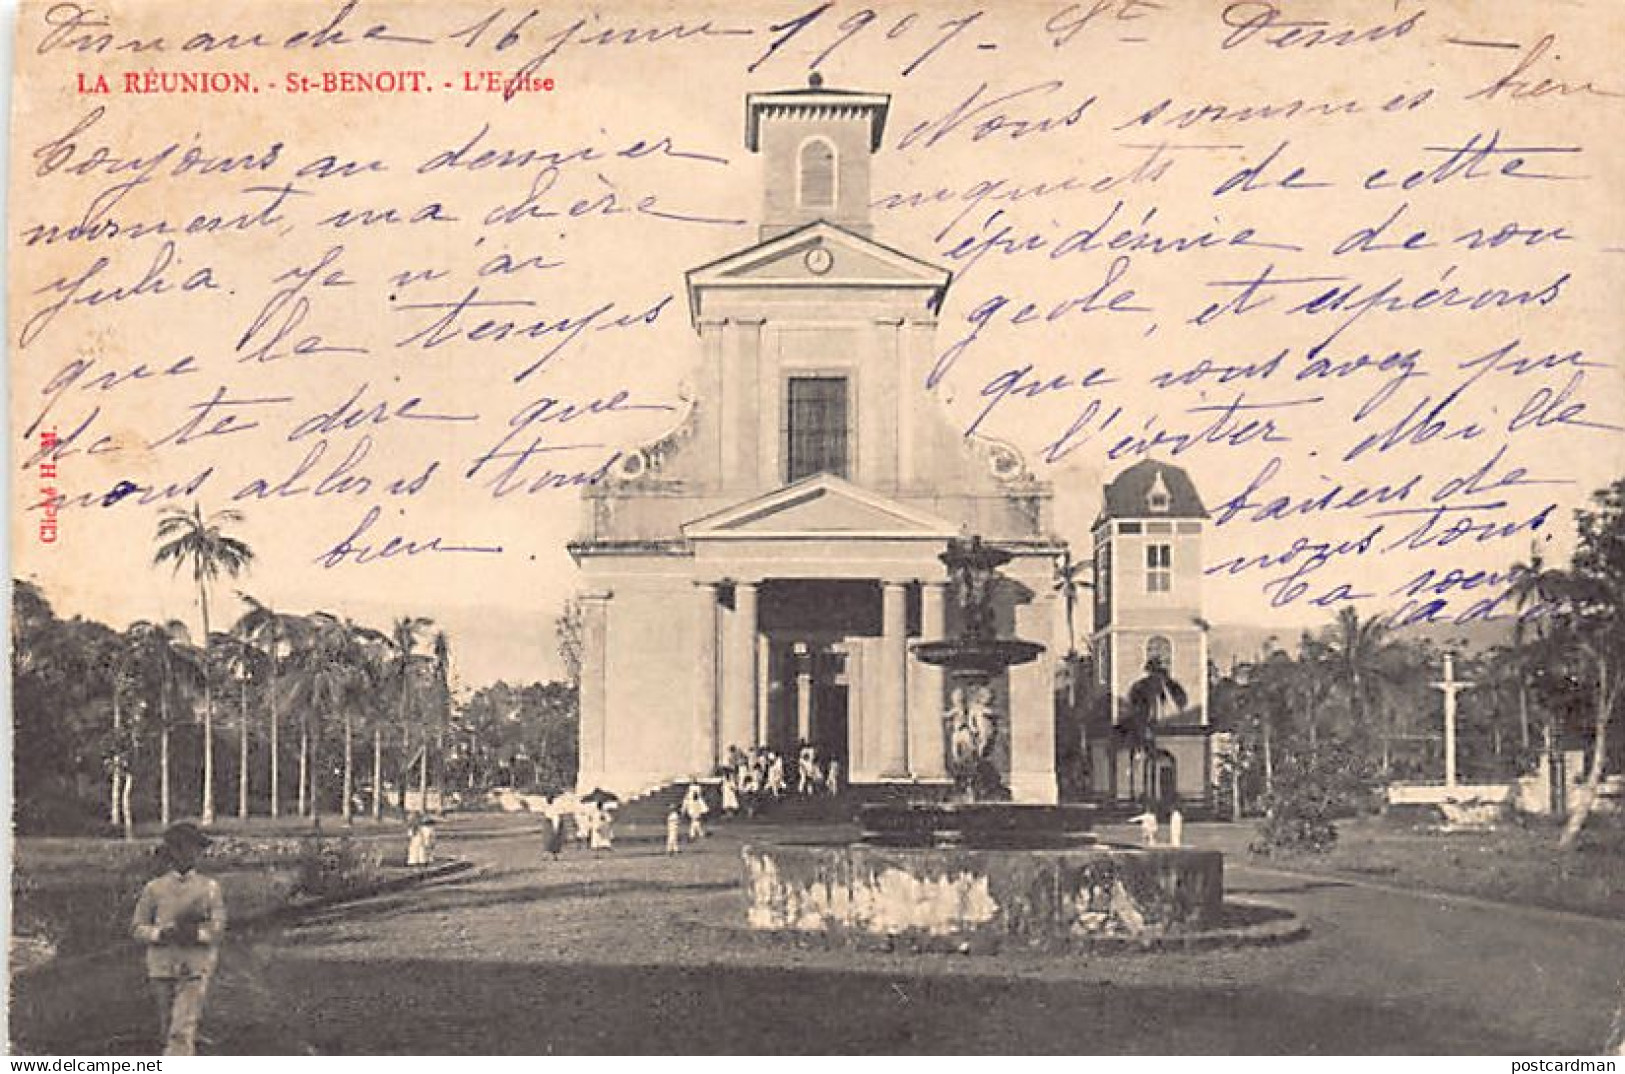 Dimanche 16 juin 1907 - St Denis -
LA RÉUNION. - St-BENOIT. - L'Eglise
Toujours au dernier
moment, ma chère
Julia. Je n'ai
que le temps
de te dire que
nous allons tous
bien.
Nous sommes bien
inquiets de cette
épidémie de rou-
geole, et espérons
que vous avez pu
l'éviter. Mille
baisers de
nous tous.
Ta soeur
Ada
Cliché H. M.
www.delcampe.net
postcardman